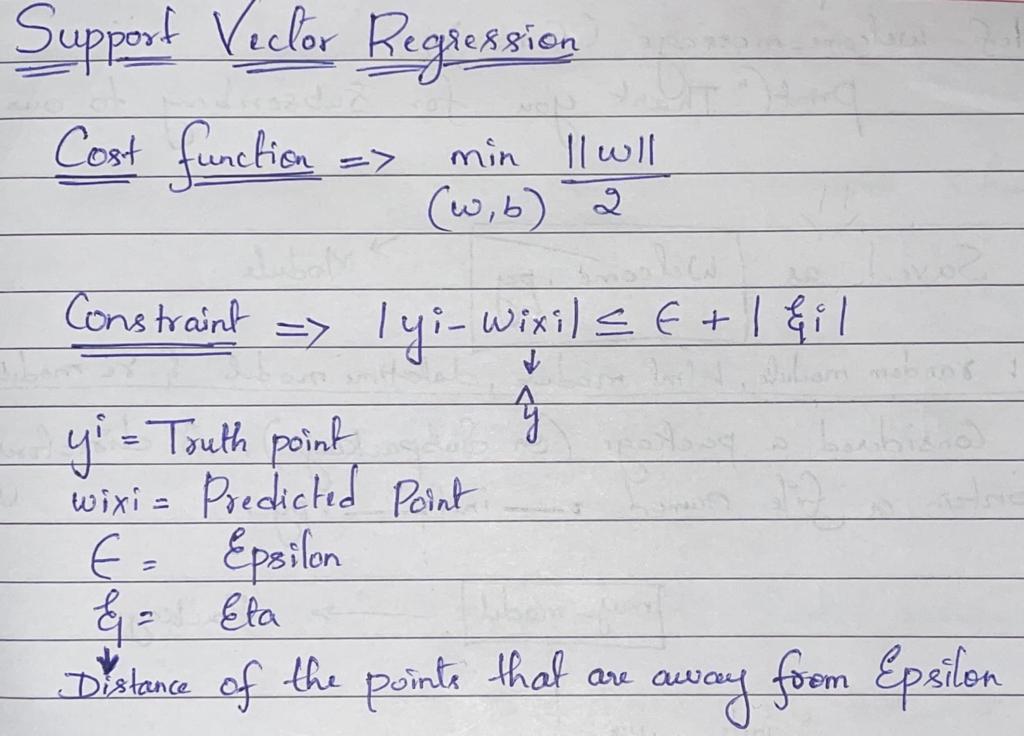 Support Vector Regression
Cost function => min ||w|| / 2
(w,b)
Constraint => |yi - wixi| ≤ ϵ + |ξi|
↓
ŷ
yi = Truth point
wixi = Predicted Point
ϵ = Epsilon
ξ = Eta
↓
Distance of the points that are away from Epsilon